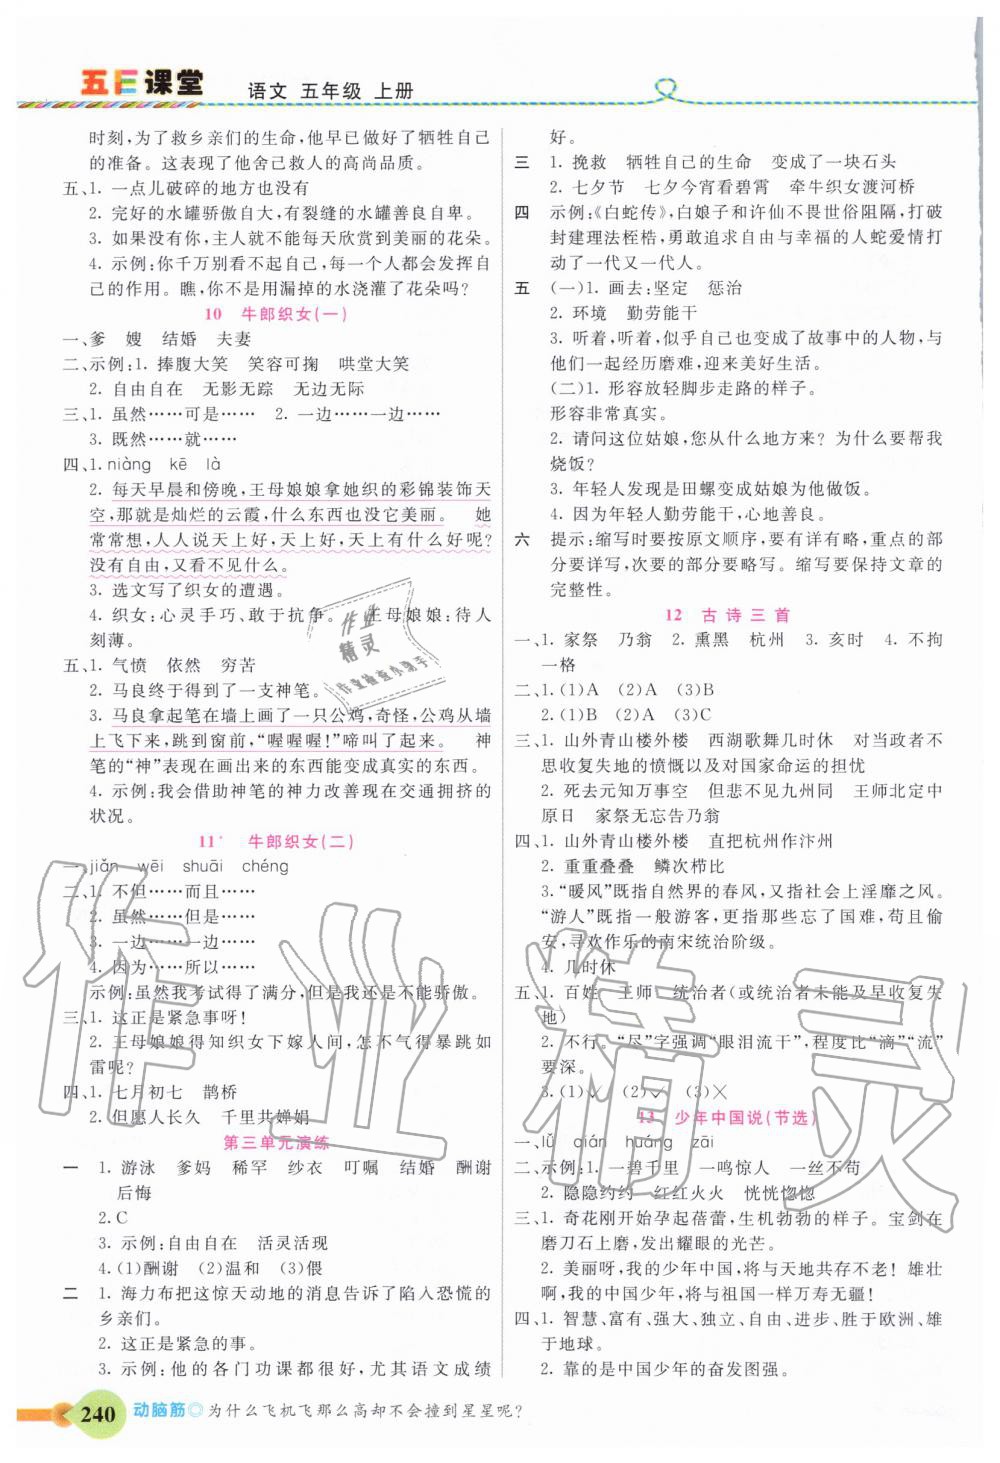 五E课堂
语文 五年级 上册
时刻,为了救乡亲们的生命,他早已做好了牺牲自己
的准备。这表现了他舍己救人的高尚品质。
五、1. 一点儿破碎的地方也没有
2. 完好的水罐骄傲自大,有裂缝的水罐善良自卑。
3. 如果没有你,主人就不能每天欣赏到美丽的花朵。
4. 示例:你千万别看不起自己,每个人都会发挥自
己的作用。瞧,你不是用漏掉的水浇灌了花朵吗?
10 牛郎织女(一)
一、爹 嫂 结婚 夫妻
二、示例:1. 捧腹大笑 笑容可掬 哄堂大笑
2. 自由自在 无影无踪 无边无际
三、1. 虽然……可是…… 2. 一边……一边……
3. 既然……就……
四、1. niàng kē là
2. 每天早晨和傍晚,王母娘娘拿她织的彩锦装饰天
空,那就是灿烂的云霞,什么东西也没它美丽。 她
常常想,人人说天上好,天上好,天上有什么好呢?
没有自由,又看不见什么。
3. 选文写了织女的遭遇。
4. 织女:心灵手巧、敢于抗争。 王母娘娘:待人
刻薄。
五、1. 气愤 依然 穷苦
2. 马良终于得到了一支神笔。
3. 马良拿起笔在墙上画了一只公鸡,奇怪,公鸡从墙
上飞下来,跳到窗前,“喔喔喔!”啼叫了起来。 神
笔的“神”表现在画出来的东西能变成真实的东西。
4. 示例:我会借助神笔的神力改善现在交通拥挤的
状况。
11 牛郎织女(二)
一、jiǎn wēi shuāi chéng
二、1. 不但……而且……
2. 虽然……但是……
3. 一边……一边……
4. 因为……所以……
示例:虽然我考试得了满分,但是我还是不能骄傲。
三、1. 这正是紧急事呀!
2. 王母娘娘得知织女下嫁人间,怎不气得暴跳如
雷呢?
四、1. 七月初七 鹊桥
2. 但愿人长久 千里共婵娟
第三单元演练
一 1. 游泳 爹妈 稀罕 纱衣 叮嘱 结婚 酬谢
后悔
2. C
3. 示例:自由自在 活灵活现
4. (1)酬谢 (2)温和 (3)偎
二 1. 海力布把这惊天动地的消息告诉了陷入恐慌的
乡亲们。
2. 这正是紧急的事。
3. 示例:他的各门功课都很好,尤其语文成绩
好。
三 1. 挽救 牺牲自己的生命 变成了一块石头
2. 七夕节 七夕今宵看碧霄 牵牛织女渡河桥
四 示例:《白蛇传》,白娘子和许仙不畏世俗阻隔,打破
封建理法桎梏,勇敢追求自由与幸福的人蛇爱情打
动了一代又一代人。
五 (一)1. 画去:坚定 惩治
2. 环境 勤劳能干
3. 听着,听着,似乎自己也变成了故事中的人物,与
他们一起经历磨难,迎来美好生活。
(二)1. 形容放轻脚步走路的样子。
形容非常真实。
2. 请问这位姑娘,您从什么地方来? 为什么要帮我
烧饭?
3. 年轻人发现是田螺变成姑娘为他做饭。
4. 因为年轻人勤劳能干,心地善良。
六 提示:缩写时要按原文顺序,要有详有略,重点的部
分要详写,次要的部分要略写。缩写要保持文章的
完整性。
12 古诗三首
一、1. 家祭 乃翁 2. 熏黑 杭州 3. 亥时 4. 不拘
一格
二、1. (1)A (2)A (3)B
2. (1)B (2)A (3)C
三、1. 山外青山楼外楼 西湖歌舞几时休 对当政者不思
收复失地的愤慨以及对国家命运的担忧
2. 死去元知万事空 但悲不见九州同 王师北定中
原日 家祭无忘告乃翁
四、1. 山外青山楼外楼 直把杭州作汴州
2. 重重叠叠 鳞次栉比
3. “暖风”既指自然界的春风,又指社会上淫靡之风。
“游人”既指一般游客,更指那些忘了国难,苟且偷
安,寻欢作乐的南宋统治阶级。
4. 几时休
五、1. 百姓 王师 统治者(或统治者未能及早收复失
地)
2. 不行。“尽”字强调“眼泪流干”,程度比“滴”“流”
要深。
3. (1)√ (2)√ (3)×
13 少年中国说(节选)
一、lǔ qián huáng zāi
二、示例:1. 一碧千里 一鸣惊人 一丝不苟
2. 隐隐约约 红红火火 恍恍惚惚
三、1. 奇花刚开始孕起蓓蕾,生机勃勃的样子。宝剑在
磨刀石上磨,发出耀眼的光芒。
2. 美丽呀,我的少年中国,将与天地共存不老! 雄壮
啊,我的中国少年,将与祖国一样万寿无疆!
四、1. 智慧、富有、强大、独立、自由、进步、胜于欧洲、雄
于地球。
2. 靠的是中国少年的奋发图强。
作业
精灵
作业检查小助手
作业精灵
240 动脑筋◎为什么飞机飞那么高却不会撞到星星呢?